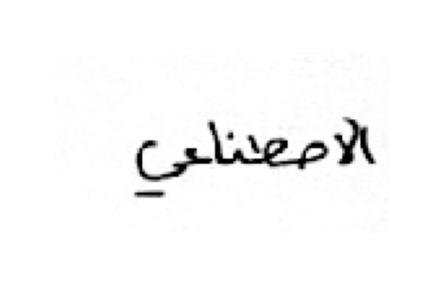 الاصطناعي